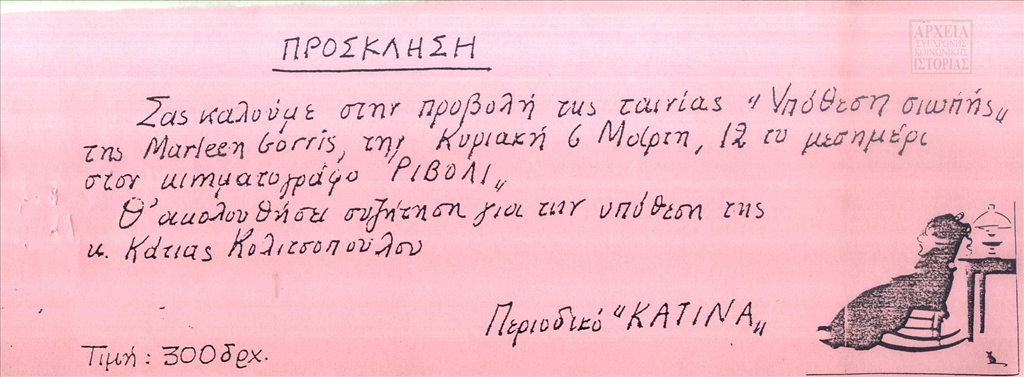 ΑΡΧΕΙΑ
ΣΥΓΧΡΟΝΗΣ
ΚΟΙΝΩΝΙΚΗΣ
ΙΣΤΟΡΙΑΣ
ΠΡΟΣΚΛΗΣΗ
Σας καλούμε στην προβολή της ταινίας "Υπόθεση σιωπής"
της Marleen Gorris, την Κυριακή 6 Μάρτη, 12 το μεσημέρι
στον κινηματογράφο "ΡΙΒΟΛΙ"
Θ' ακολουθήσει συζήτηση για την υπόθεση της
κ. Κάτιας Κολιτσοπούλου
Περιοδικό "ΚΑΤΙΝΑ"
Τιμή: 300 δρχ.